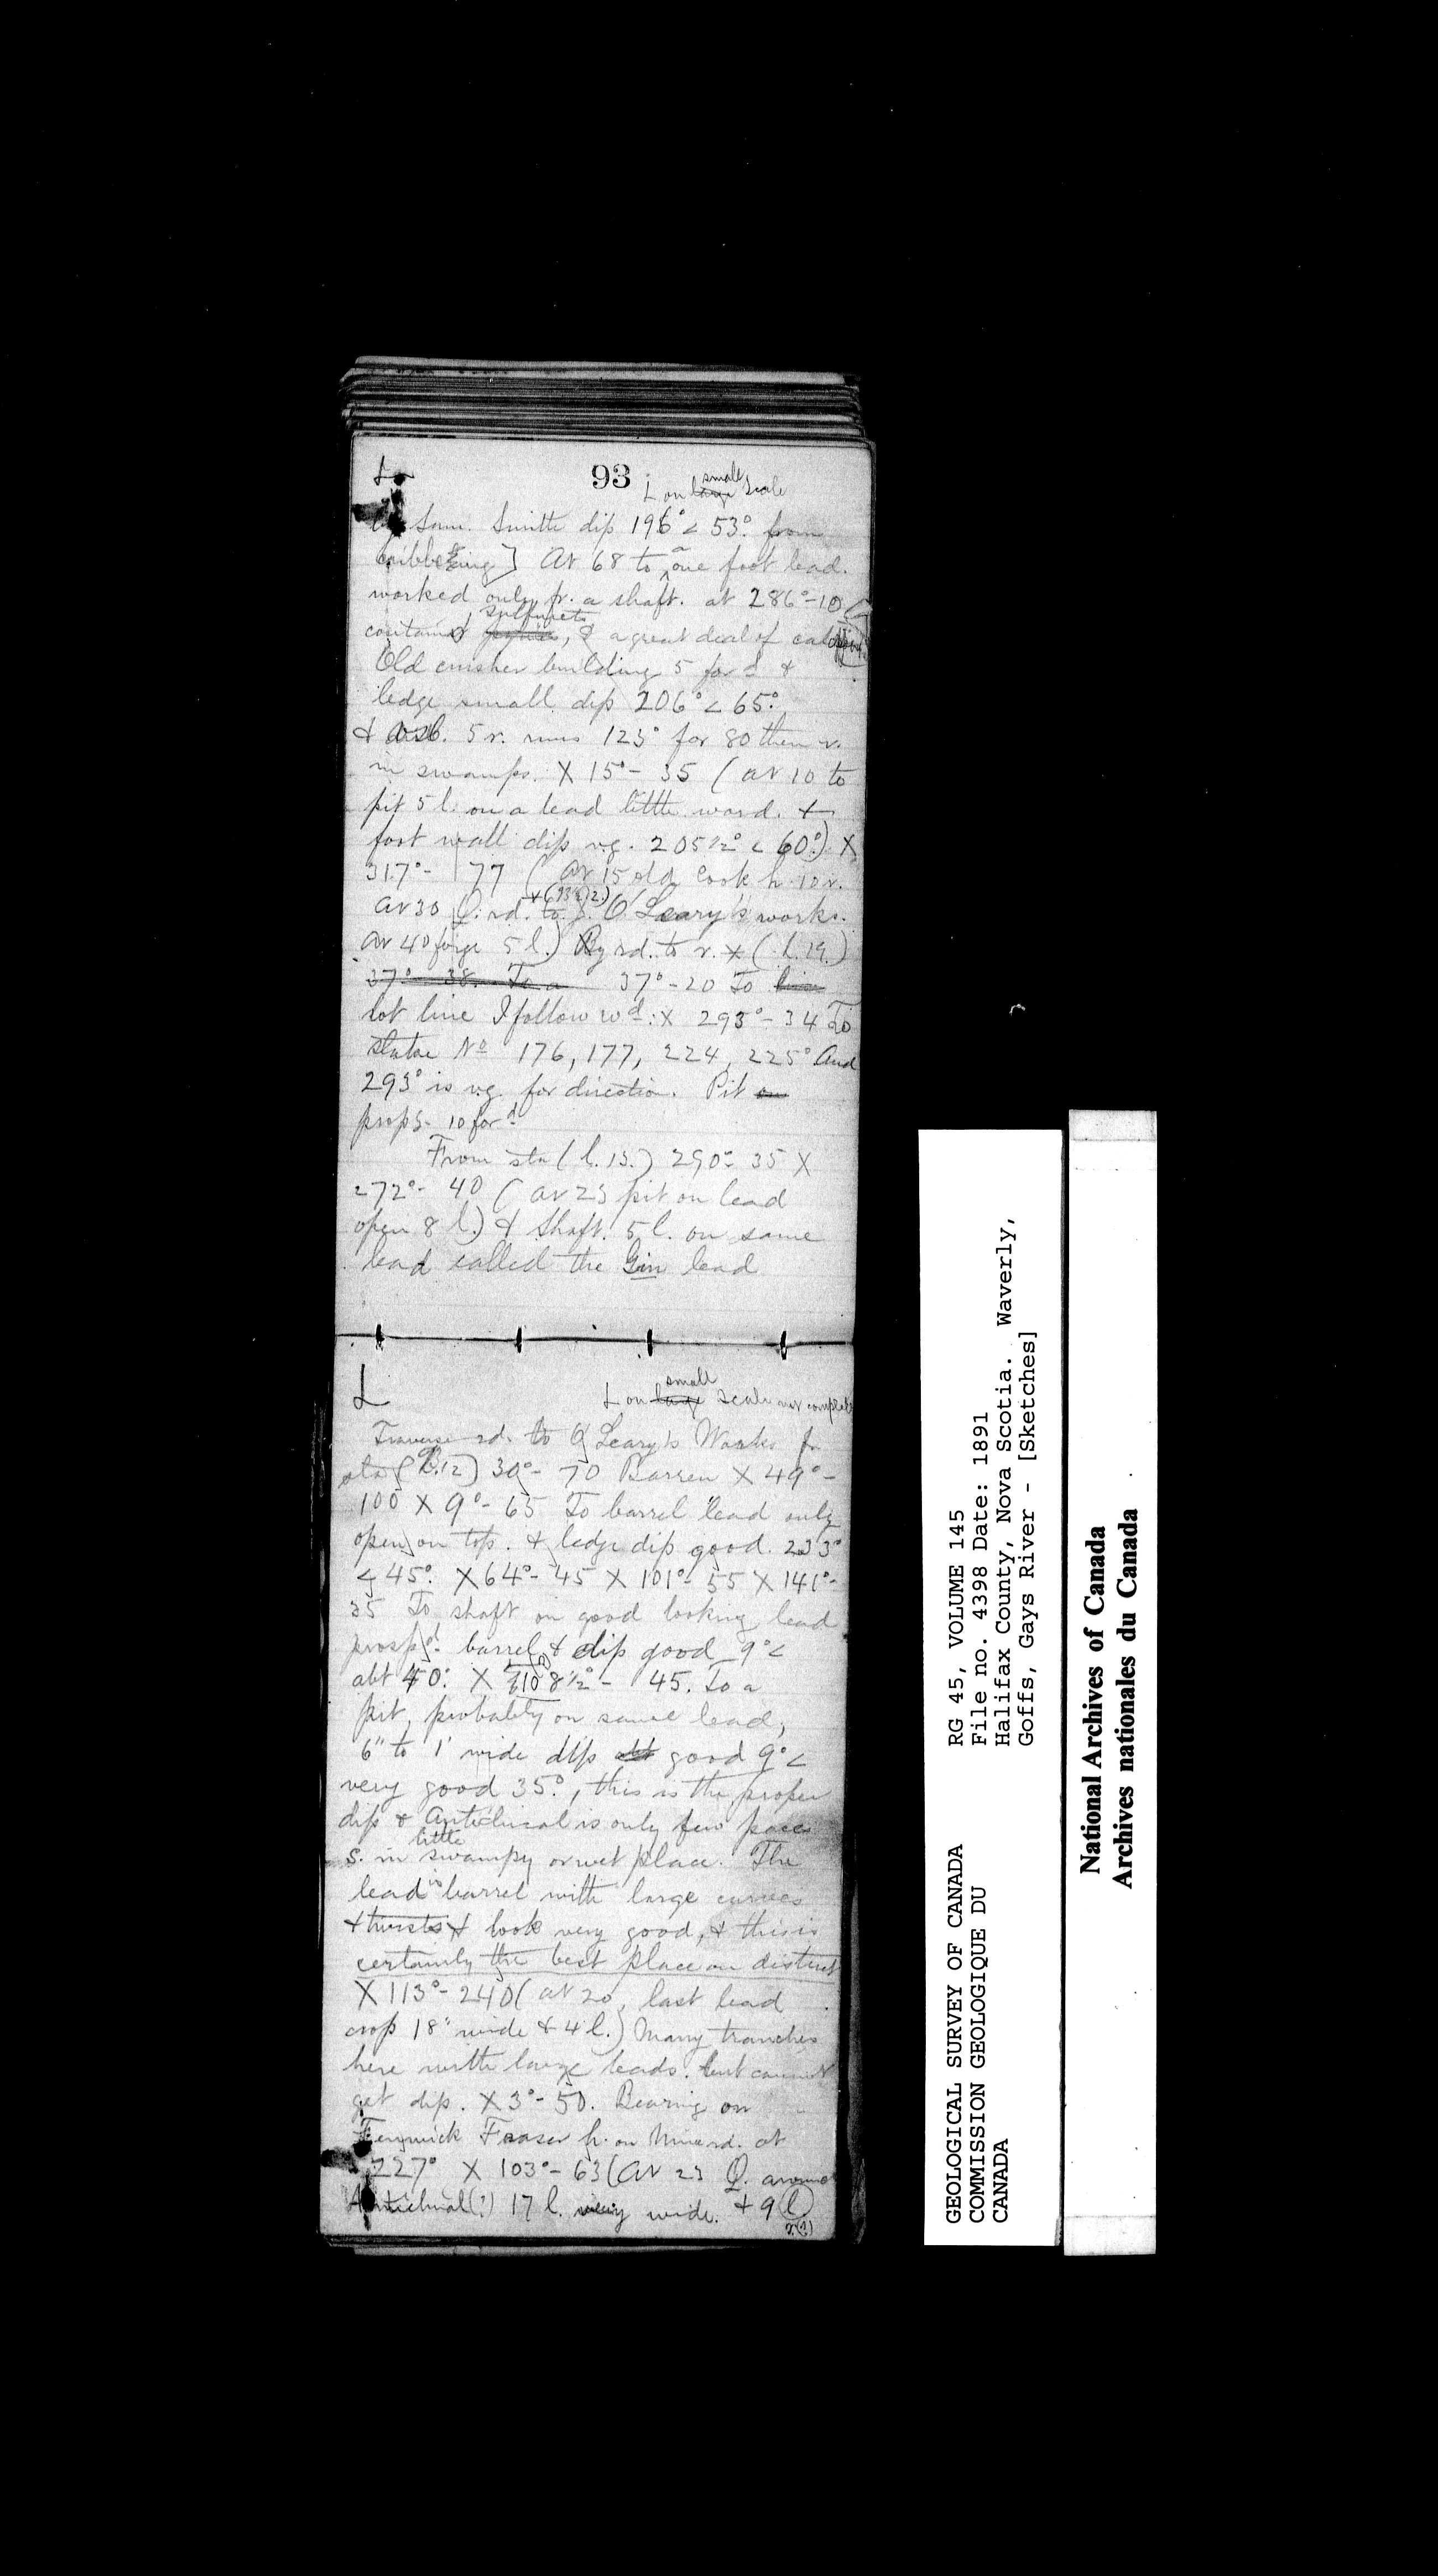 93
L on ~~large~~ small scale
Sam. Smith dip 196° < 53° from
cribbeting] At 68 to a one foot lead.
worked only fr. a shaft. at 286°-10
contains sulfurets, & a great deal of
Old crusher building 5 ford &
ledge small dip 206° < 65°.
5 r. runs 123° for 80 then r.
in swamp. X 15°- 35 (at 10 to
pit 5 l. on a lead little word. +
foot wall dip v.g. 205 1/2° < 60°) X
317°- 77 (at 15 old Cook h. 10 r.
At 30 rd. to J. O'Leary's works.
at 40 forge 5 l.) By rd. to r. X (l.19.)
~~37° 38 To a~~ 37°-20 To ~~line~~
lot line I follow wd: X 293°- 34 To
stake No 176, 177, 224, 225° And
293° is v.g. for direction. Pit ~~on~~
props. 10 ford
From sta (l.13.) 290°- 35 X
272°- 40 (at 23 pit on lead
open 8 l.) & shaft. 5 l. on same
lead called the Gin lead
L
L on ~~large~~ small scale not complete
Traverse rd. to O'Leary's Works fr
sta (l.12) 30°- 70 Barren X 49°-
100 X 9°- 65 To barrel lead only
open on top. & ledge dip good. 233°
< 45°. X 64°- 45 X 101°- 55 X 141°-
35 To shaft on good looking lead
prospd. barrel & dip good 9° <
abt 40°. X 8 1/2° - 45. To a
pit, probably on same lead,
6" to 1' wide dip ~~abt~~ good 9° <
very good 35°., this is the proper
dip & Anticlinal is only few paces
s. in little swampy or wet place. The
lead is barrel with large curves
& twists & look very good, & this is
certainly the best place on district
X 113°- 240 (at 20, last lead
crop 18" wide & 4 l.) Many tranches
here with large leads. but cannot
get dip. X 3°- 50. Bearing on
Fenwick Fraser h. on Mine rd. at
227° X 103°- 63 (At 23 Q. around
Anticlinal (?) 17 l. very wide. + 9 l
GEOLOGICAL SURVEY OF CANADA
COMMISSION GEOLOGIQUE DU
CANADA
RG 45, VOLUME 145
File no. 4398 Date: 1891
Halifax County, Nova Scotia. Waverly,
Goffs, Gays River - [Sketches]
National Archives of Canada
Archives nationales du Canada